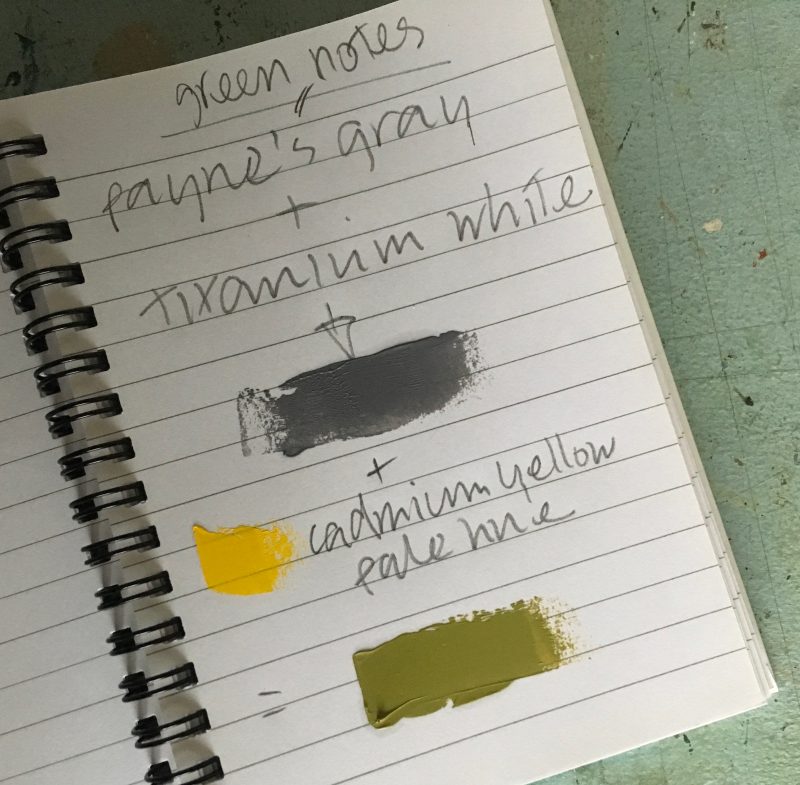 green notes
payne's gray
+
titanium white
+
cadmium yellow
pale hue
=